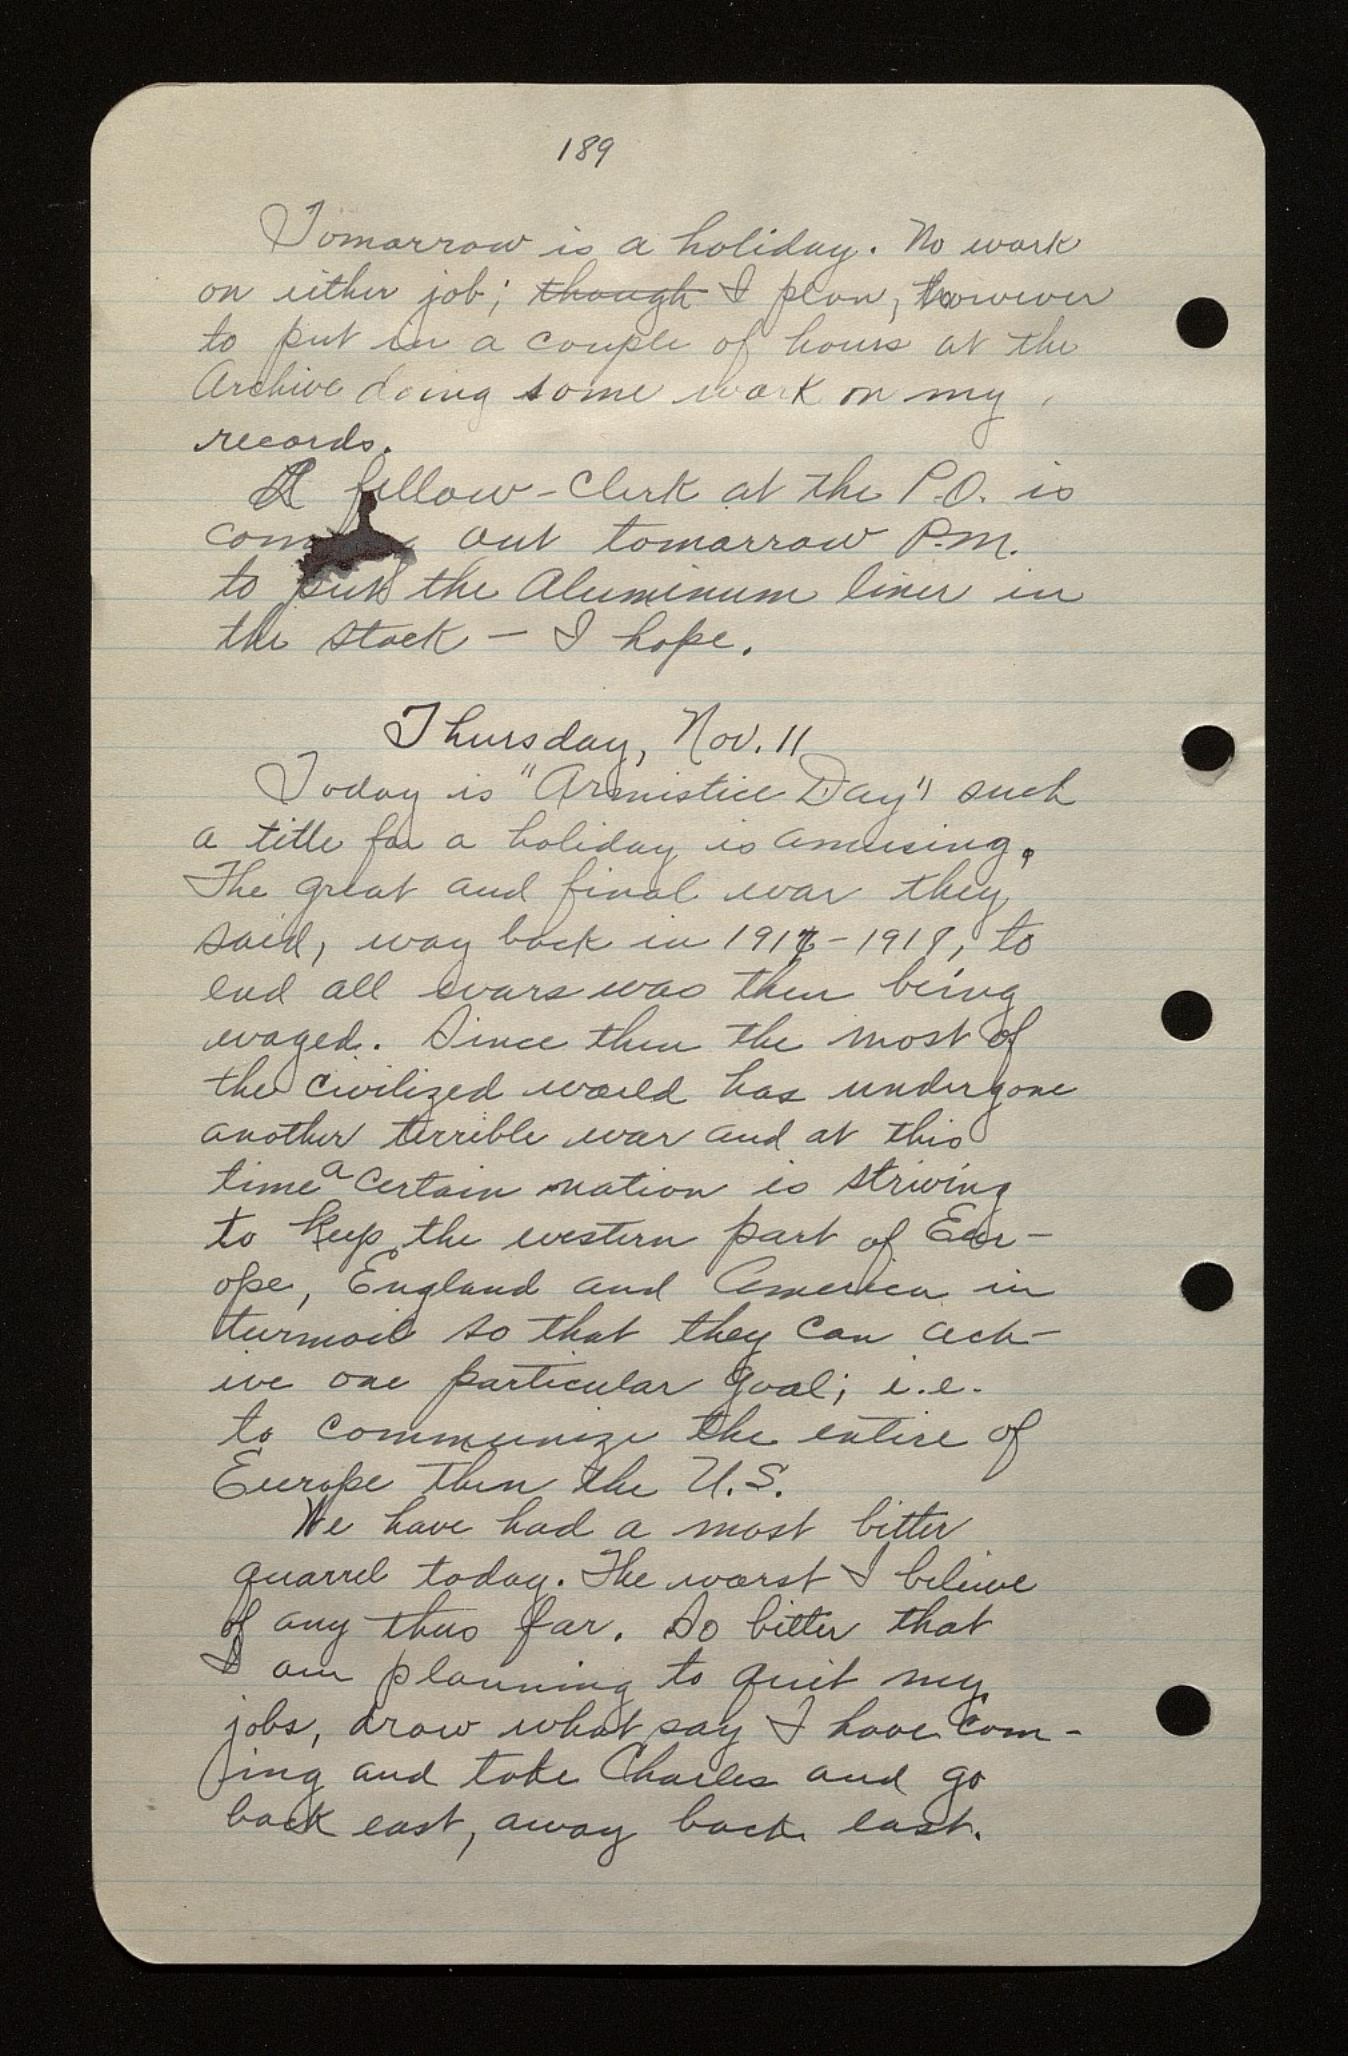 189
Tomarrow is a holiday. No work
on either job; though I plan, however
to put in a couple of hours at the
Archive doing some work on my
records.
A fellow-clerk at the P.O. is
coming out tomarrow P.M.
to put the Aluminum liner in
the stack - I hope.
Thursday, Nov. 11
Today is "Armistice Day" such
a title for a holiday is amusing.
The great and final war they
said, way back in 1917-1918, to
end all wars was then being
waged. Since then the most of
the civilized world has undergone
another terrible war and at this
time a certain nation is striving
to keep the western part of Eur-
ope, England and America in
turmoil so that they can ach-
ive one particular goal; i.e.
to communize the entire of
Europe then the U.S.
We have had a most bitter
quarrel today. The worst I believe
of any thus far. So bitter that
I am planning to quit my
jobs, draw what pay I have com-
ing and take Charles and go
back east, away back east.